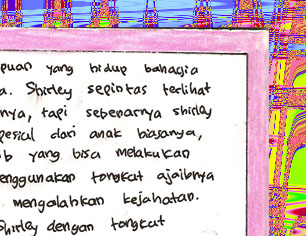 puan yang hidup bahagia
a. Shirley sepintas terlihat
nya, tapi sebenarnya shirley
pesial dari anak biasanya,
b yang bisa melakukan
enggunakan tongkat ajaibnya
mengalahkan kejahatan.
Shirley dengan tongkat